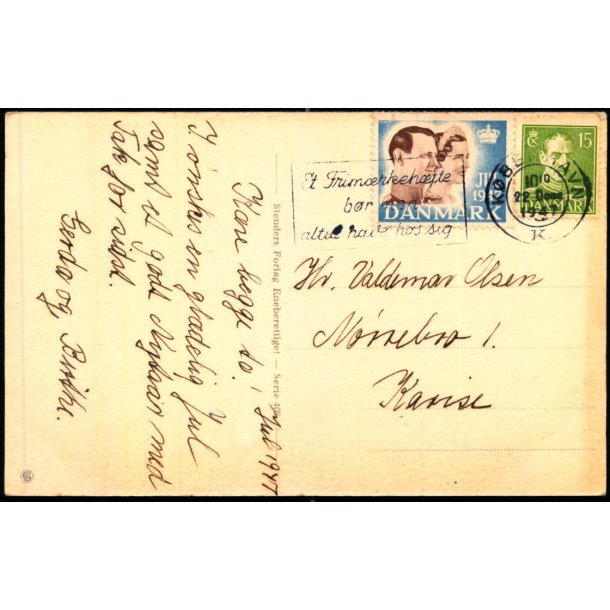 Jul 1947
Kære begge to!
I ønskes en glædelig Jul
samt et godt Nytaar med
Tak for sidst.
Gerda og
Stenders Forlag Eneberettiget — Serie
Et Frimærkehæfte
bør
altid have hos sig
JUL
DANMARK
15
DANMARK
KØBENHAVN
K.
Hr. Valdemar Olsen
Nørrebro 1.
Karise.